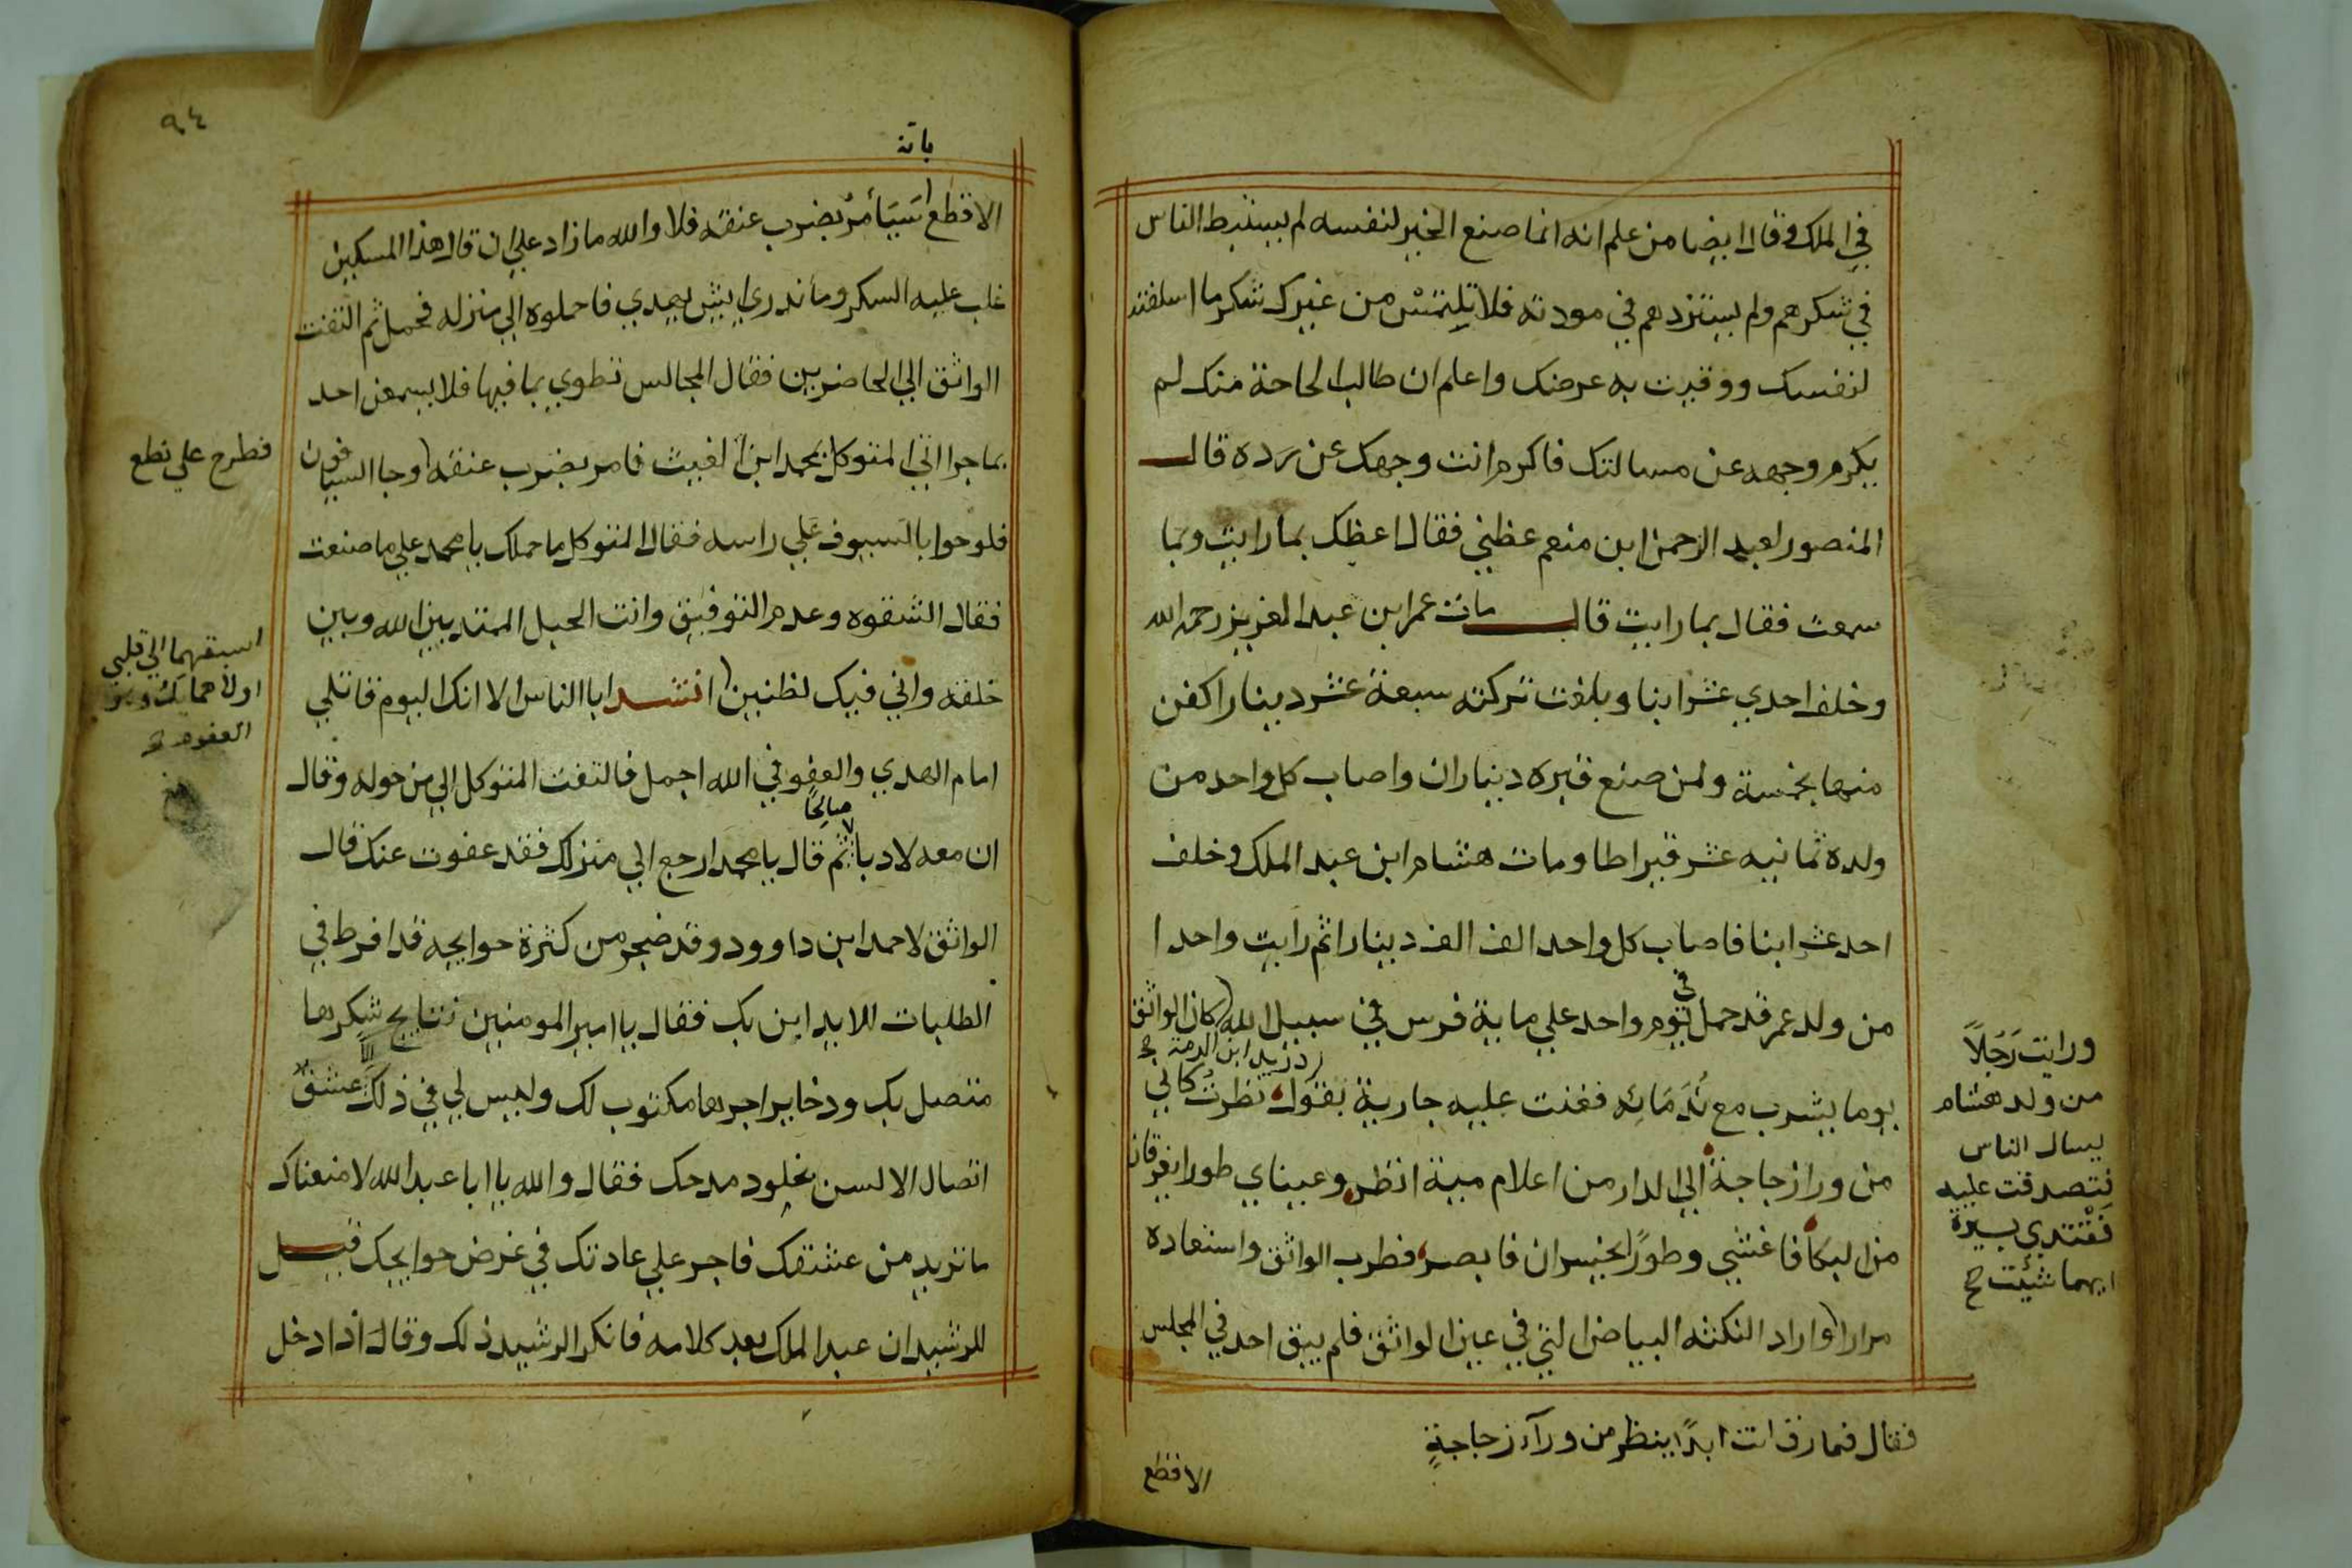 في الملك وقال ايضا من علم انه انما صنع الخير لنفسه لم يستبط الناس
في شكرهم ولم يستزدهم في مودته فلا تلتمس من غيرك شكر ما اسلفته
لنفسك ووقيت به عرضك واعلم ان طالب الحاجة منك لم
يكرم وجهه عن مسالتك فاكرم انت وجهك عن رده قال
المنصور لعبد الرحمن ابن منعم عظني فقال اعظك بما رايت وبما
سمعت فقال بما رايت قال مات عمر ابن عبد العزيز رحمه الله
وخلف احدي عشر ابنا وبلغت تركته سبعة عشر دينارا كفن
منها بخمسة ولمن صنع قبره ديناران واصاب كل واحد من
ولده ثمانيه عشر قيراطا ومات هشام ابن عبد الملك وخلف
احد عشر ابنا فاصاب كل واحد الف الف دينار اثم رايت واحدا
من ولد عمر قد حمل في يوم واحد علي ماية فرس في سبيل الله كان الواثق
يوما يشرب مع ندمائه فغنت عليه جارية بقول نظرت كاني
من ورا زجاجة الي الدار من اعلام مية انظر وعيناي طورا يغرقان
من البكا فاغشي وطورًا يحيسران فابصر فطرب الواثق واستعاده
مرارا واراد النكته البياض التي في عين الواثق فلم يبق احد في المجلس
فقال فما زلت ابدًا ينظر من ورآء زجاجةٍ
الاقطع
ورايت رَجُلاً
من ولد هشام
يسال الناس
نتصدقت عليه
فَتَقْتدي بسيرة
ايهما شئت صح
٩٤
بانه
الاقطع اسَيَأمرُ بضرب عنقه فلا والله ما زاد علي ان قال هذا المسكين
غلب عليه السكر وما ندري ايش يهدي فاحملوه الي منزله فحمل ثم التفت
الواثق الي الحاضرين فقال المجالس تطوي بما فيها فلا يسمعن احد
بما جرا اتي المتوكل بمحمد ابن المغيث فامر بضرب عنقه وجا السيافون
فلوحوا بالسيوف علي راسه فقال المتوكل ما حملك يا محمد علي ما صنعت
فقال الشقوه وعدم التوفيق وانت الحبل الممتد بين الله وبين
خلقه واني فيك لظنين انشد ابا الناس الا انك اليوم قاتلي
امام الهدي والعفو في الله اجمل فالتفت المتوكل الي من حوله وقال
ان معه لادبا صالحًا ثم قال يا محمد ارجع الي منزلك فقد عفوت عنك قال
الواثق لاحمد ابن داوود وقد ضجر من كثرة حوايجه قد افرط في
الطلبات للابد ابن بك فقال يا امير المومنين نتايج شكرها
متصل بك وذخاير اجرها مكتوب لك وليس لي في ذلك الا عشق
اتصال الالسن بخلود مدحك فقال والله يا ابا عبد الله لا منعناك
ما تزيد من عشقك فاجر علي عادتك في عرض حوايجك قيل
للرشيد ان عبد الملك يعد كلامه فانكر الرشيد ذلك وقال اذا دخل
فطرح علي نطع
اسبقهما الي قلبي
العفو صح